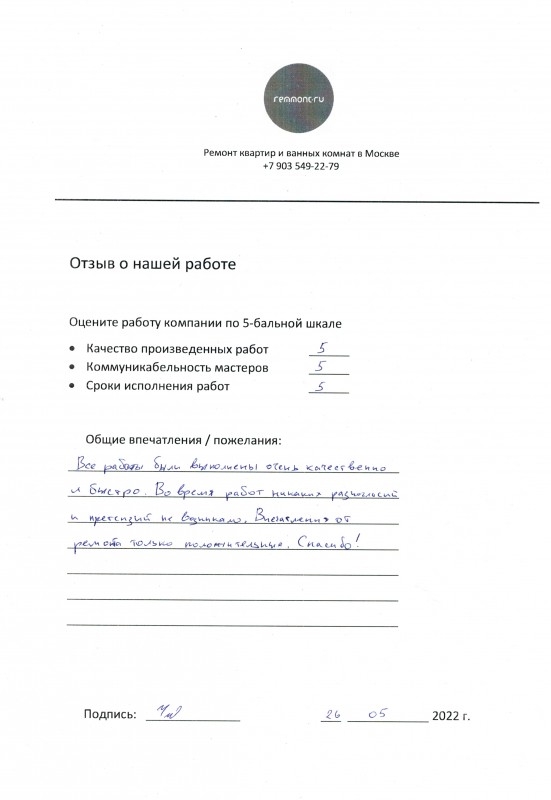 remmont.ru
Ремонт квартир и ванных комнат в Москве
+7 903 549-22-79
Отзыв о нашей работе
Оцените работу компании по 5-бальной шкале
• Качество произведенных работ 5
• Коммуникабельность мастеров 5
• Сроки исполнения работ 5
Общие впечатления / пожелания:
Все работы были выполнены очень качественно
и быстро. Во время работ никаких разногласий
и претензий не возникало. Впечатления от
ремонта только положительные. Спасибо!
Подпись: 26 05 2022 г.